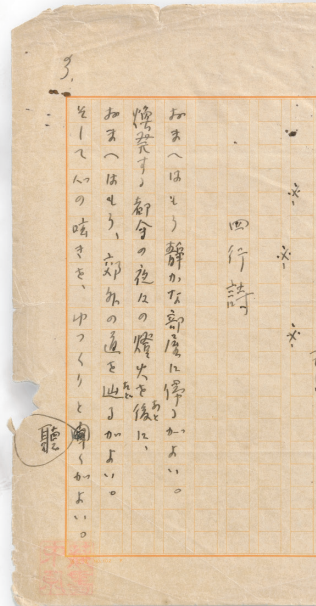 四行詩
おまへはもう静かな部屋に帰るがよい。
煥発する都会の夜々の燈火を後に、
あと
おまへはもう、郊外の道を辿るがよい。
たど
そして心の呟きを、ゆつくりと聴くがよい。
聽